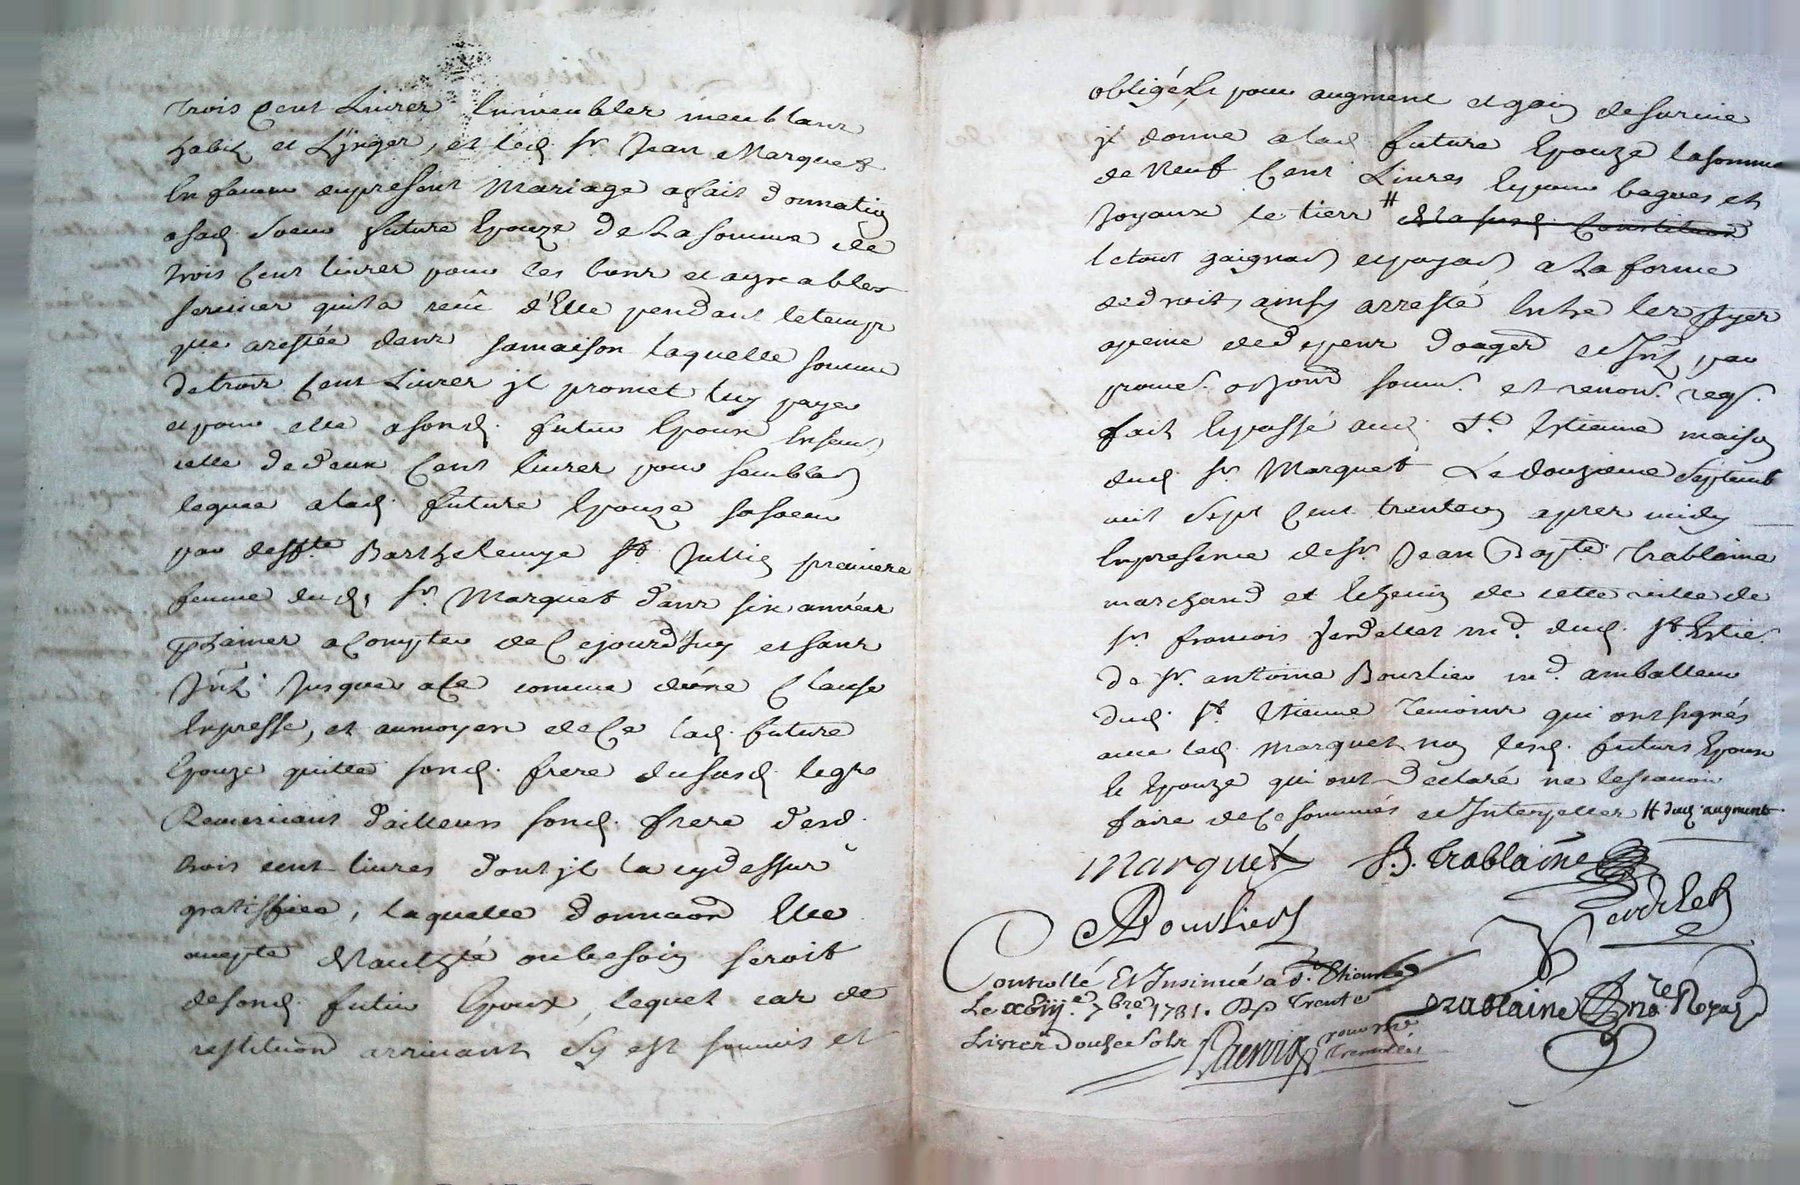 trois cent Livres En meubles meublans
habits et Linges, et led. Sr. Jean Marquet
En faveur du present mariage a fait donnation
a sad. Soeur future Epouze de La somme de
trois Cent livres pour les bons et agreables
services quil a receu d'Elle pendant le temps
qu'elle a restée dans sa maison laquelle somme
de trois Cent Livres jl promet luy payer
et pour elle a sond. futur Epoux Ensemble
celle de deux Cent livres pour semblable
leguée a lad. future Epouze sa soeur
par deffte. Barthelemye St. Jullien premiere
femme dud. Sr. Marquet dans six années
prochaines a Compter de Cejourd'huy et sans
Jnt. Jusques a Ce comme d'une Clause
Expresse, et au moyen de Ce lad. future
Epouze quitte sond. frere du susd. legs
Remerciant d'ailleurs sond. frere desd.
trois cent livres dont jl la cy dessus
gratiffiée, laquelle donnaon Elle
accepte de l'authté ou besoin seroit
de sond. futur Epoux, lequel cas de
restituon arrivant s'y est soumis et
obligé Et pour augment et gain de survie
jl donne a lad. future Epouze la somme
de Neuf Cent Livres Et pour bagues et
Joyaux le tiers # de la susd. Constituon
le tout gaignable et payable a La forme
de droit, ainsy arresté Entre les Partyes
a peine de depens domages et Jnt. par
promes. et sous soumis. et renon. req.
fait Et passé aud. St. Etienne maison
dud. Sr. Marquet Le douzieme Septembre
mil Sept Cent trente un apres midy
En presence de Sr. Jean Bapte. Trablaine
marchand et Echevin de cette ville de
Sr. francois Verdellet md. dud. St. Estie.
De Sr. antoine Bourlier md. amballeur
dud. St. Etienne Temoins qui ont signés
avec led. Marquet non lesd. futurs Epoux
Et Epouze qui ont declaré ne le scavoir
faire de Ce sommés et Interpellés # dud. augment
Marquet J.B. Trablaine
A Bourlier Verdelet
Controllé Et Insinué a St. Etienne
Le xviije. 7bre. 1731. Rp Trente
Livres Douze Sols
Trablaine Nore Royal